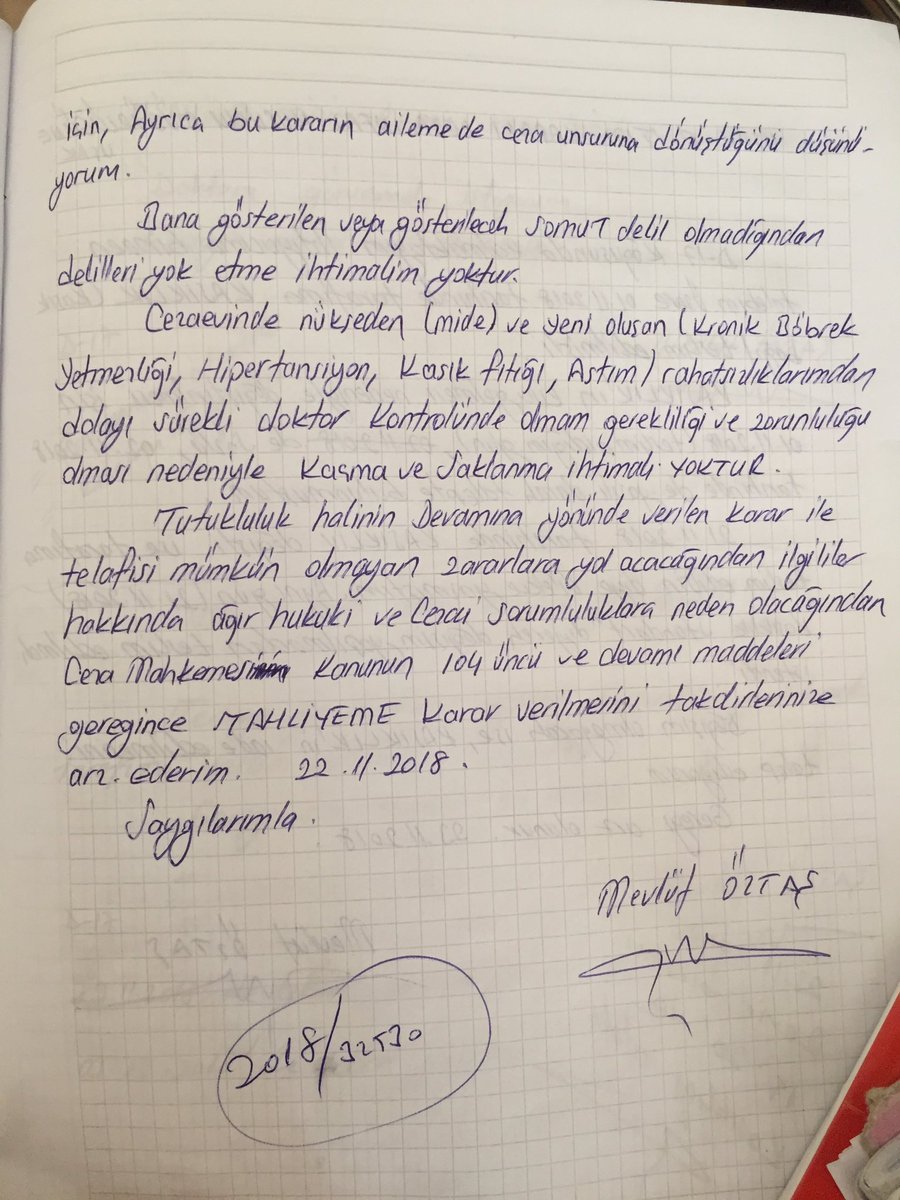 için, Ayrıca bu kararın ailemede ceza unsuruna dönüştüğünü düşünü-
yorum.
Bana gösterilen veya gösterilecek somut delil olmadığından
delilleri yok etme ihtimalim yoktur.
Cezaevinde nükseden (mide) ve yeni oluşan (Kronik Böbrek
Yetmezliği, Hipertansiyon, Kasık fıtığı, Astım) rahatsızlıklarımdan
dolayı sürekli doktor kontrolünde olmam gerekliliği ve zorunluluğu
olması nedeniyle Kaçma ve Saklanma ihtimali YOKTUR.
Tutukluluk halinin Devamına yönünde verilen karar ile
telafisi mümkün olmayan zararlara yol açacağından ilgililer
hakkında ağır hukuki ve Cezai sorumluluklara neden olacağından
Ceza Mahkemesi Kanunun 104 üncü ve devamı maddeleri
gereğince TAHLİYEME karar verilmesini takdirlerinize
arz. ederim. 22.11.2018.
Saygılarımla.
Mevlüt ÖZTAŞ
2018/32530